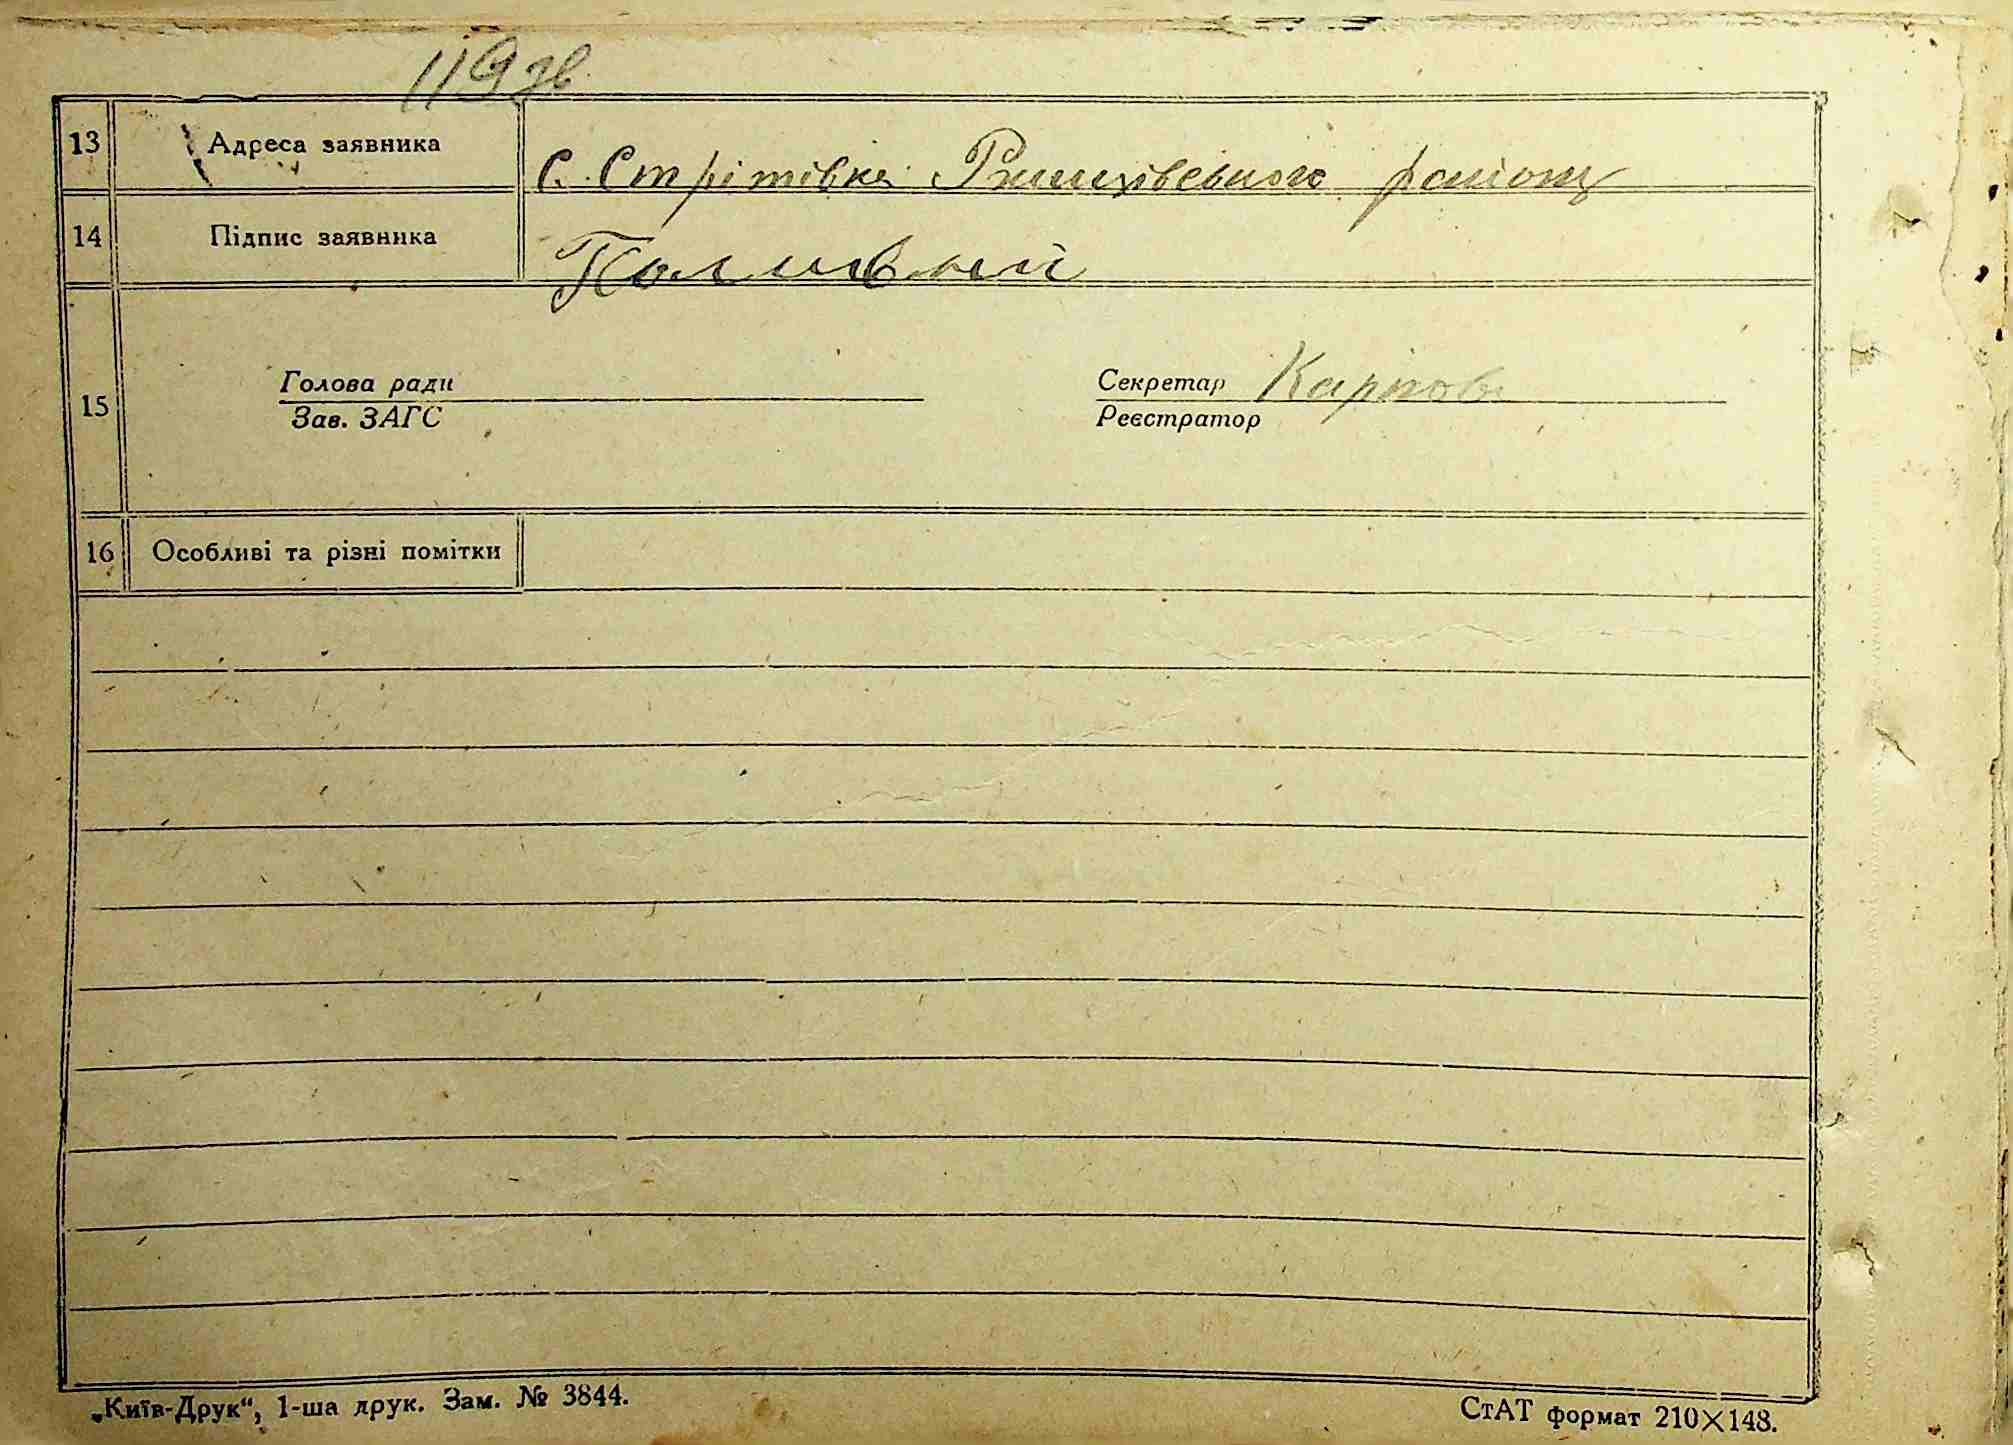 119зв
13 Адреса заявника с. Стрітівка Ржищівського району
14 Підпис заявника Поливный
15
Голова ради Секретар Карпов
Зав. ЗАГС Реєстратор
16 Особливі та різні помітки
„Київ-Друк“, 1-ша друк. Зам. № 3844. СтАТ формат 210×148.